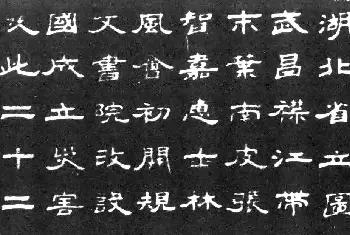 湖北省立圖
武昌襟江帶
末葉南皮張
智嘉惠士林
風會初開規
文書院改設
國成立災害
此二十二